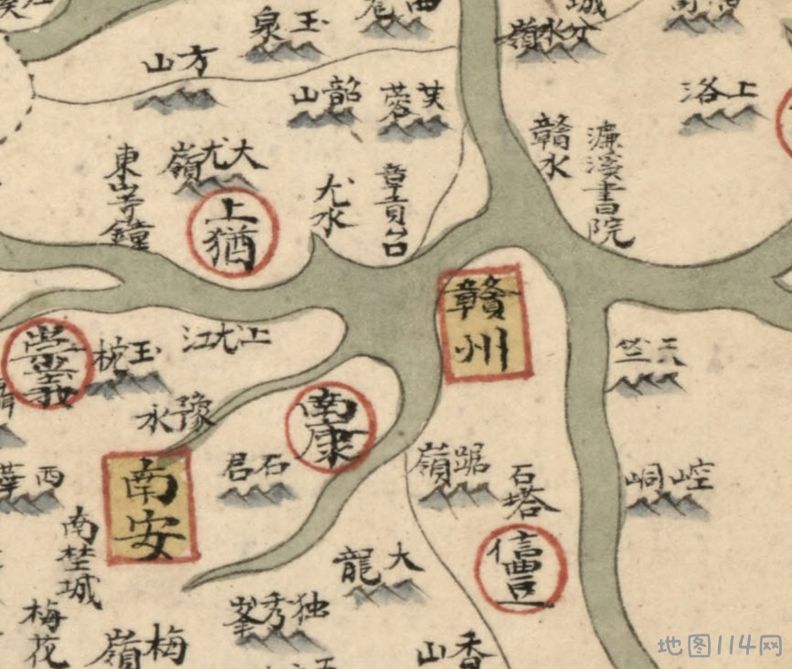 玉泉
分水嶺
方山
韶山
芙蓉
上洛
贛水
濂溪書院
大尤嶺
尤水
章貢台
東山寺鐘
上猶
贛州
崇義
玉枕
上尤江
天竺
豫水
南康
石君
踞嶺
石塔
崆峒
西華
南安
信豐
南埜城
大龍
独秀峯
梅花
梅嶺
香山
地图114网